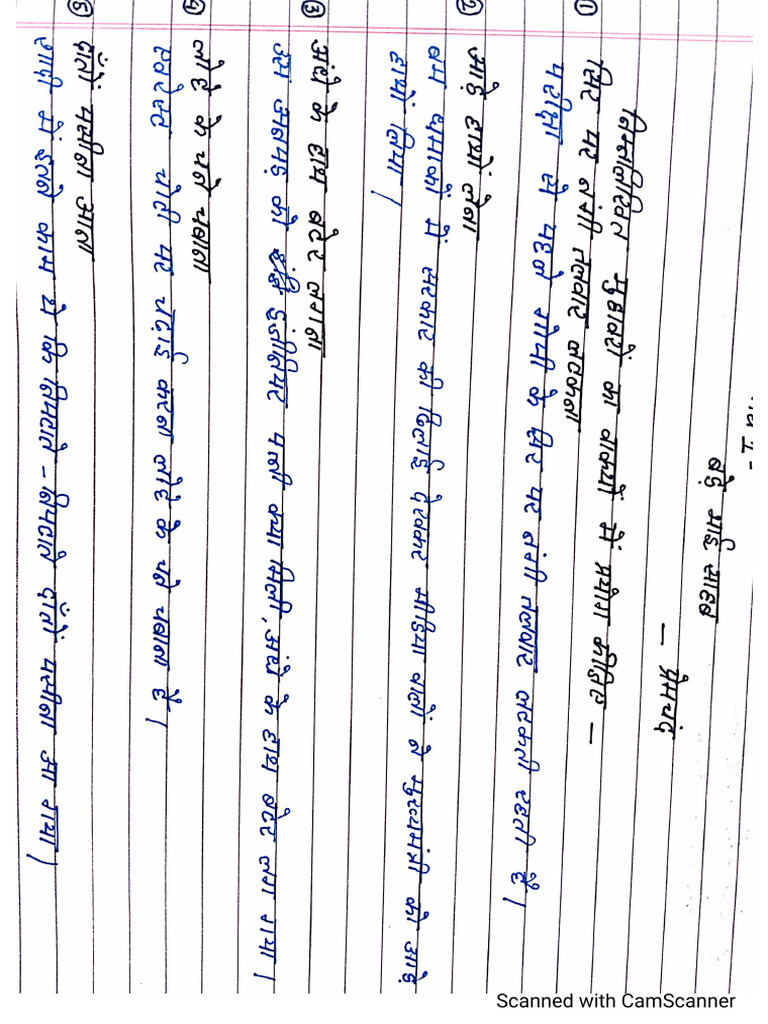 बड़े भाई साहब
— प्रेमचंद
निम्नलिखित मुहावरों का वाक्यों में प्रयोग कीजिए —
① सिर पर नंगी तलवार लटकना
परीक्षा से पहले गोपी के सिर पर नंगी तलवार लटकती रहती है।
② आड़े हाथों लेना
बम धमाकों में सरकार की ढिलाई देखकर मीडिया वालों ने मुख्यमंत्री को आड़े
हाथों लिया।
③ अंधे के हाथ बटेर लगना
उस अनपढ़ को इंजीनियर पत्नी क्या मिली, अंधे के हाथ बटेर लग गया।
④ लोहे के चने चबाना
एवरेस्ट चोटी पर चढ़ाई करना लोहे के चने चबाना है।
⑤ दाँतों पसीना आना
शादी में इतने काम थे कि निपटाते-निपटाते दाँतों पसीना आ गया।
Scanned with CamScanner